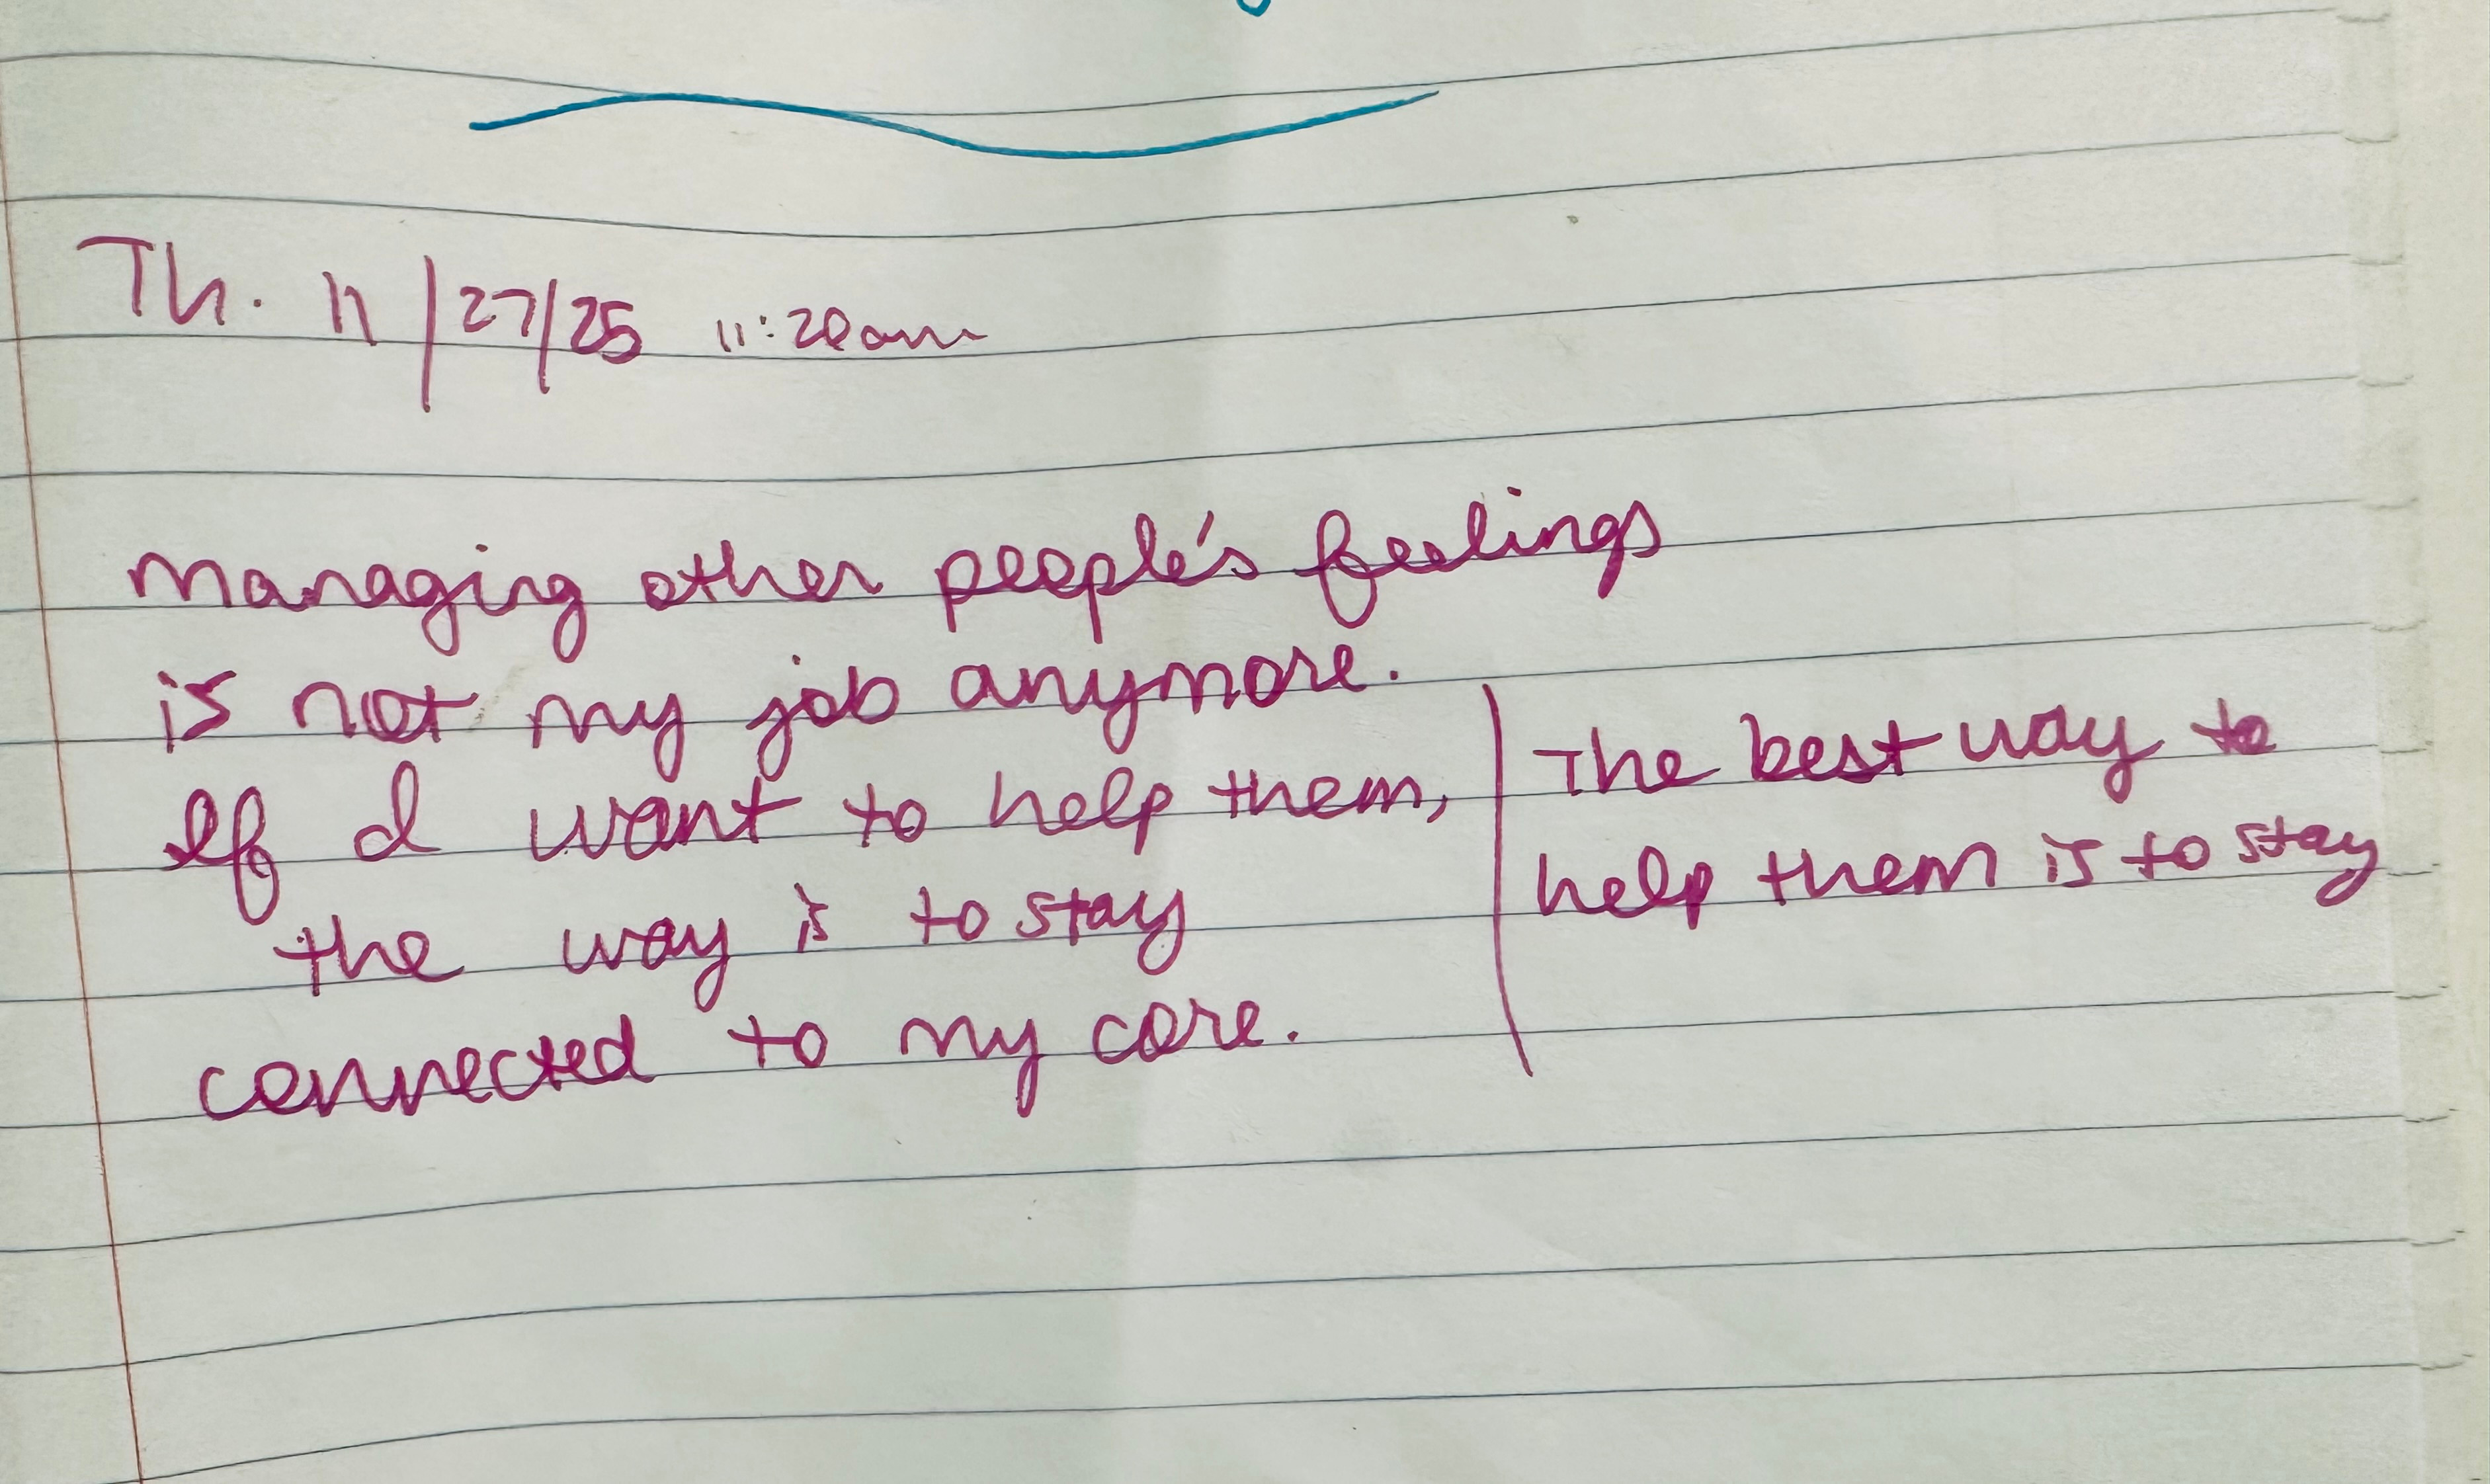 Th. 11/27/25 11:20am
Managing other people's feelings
is not my job anymore.
If I want to help them,
the way is to stay
connected to my core.
The best way to
help them is to stay